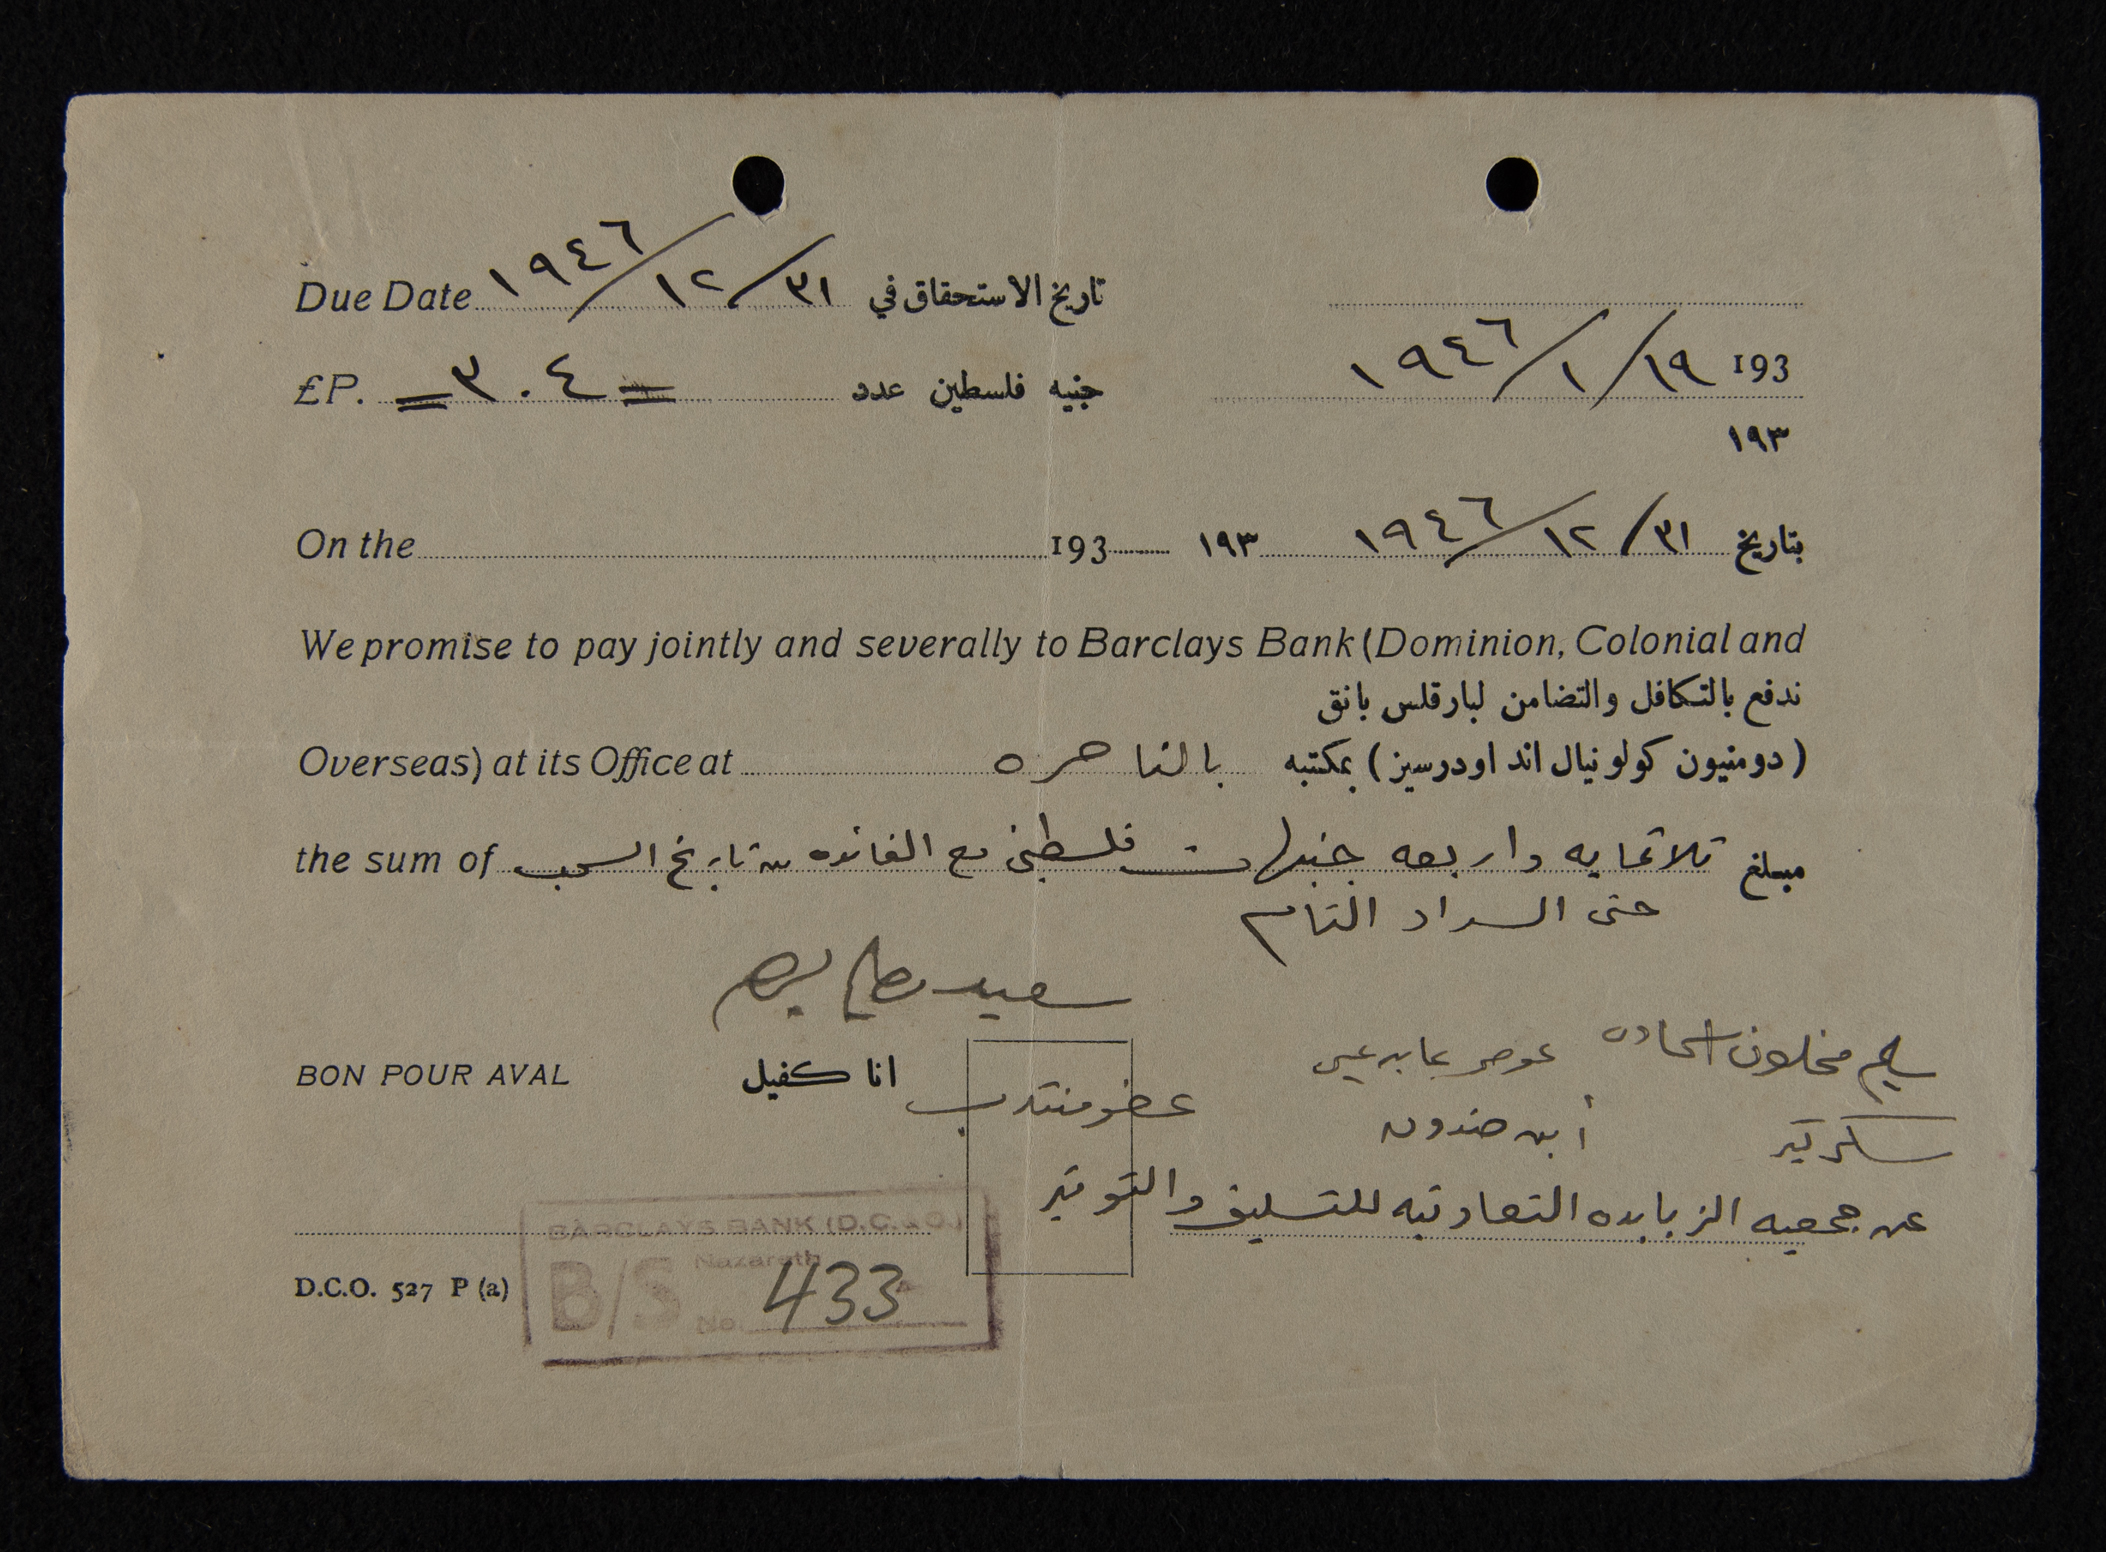 Due Date ١٩٤٦/١٢/٣١ تاريخ الاستحقاق في
١٩٤٦/١/١٩ 193
£P. = ٣٠٤ = جنيه فلسطين عدد
١٩٣
On the 193 ١٩٣ ١٩٤٦/١٢/٣١ بتاريخ
We promise to pay jointly and severally to Barclays Bank (Dominion, Colonial and
ندفع بالتكافل والتضامن لبارقلس بانق
Overseas) at its Office at بالناصره (دومنيون كولونيال اند اودرسيز) بمكتبه
the sum of مبلغ ثلاثمايه واربعه جنيهات فلسطيني مع الفائده من تاريخ السحب
حتى السداد التام
سعيد
سليم
BON POUR AVAL انا كفيل
عضو منتدب
أمين صندوق
سكرتير
عن جمعيه الزبابده التعاونيه للتسليف والتوفير
BARCLAYS BANK (D.C. & O.)
Nazareth
B/S No. 433
D.C.O. 527 P (a)